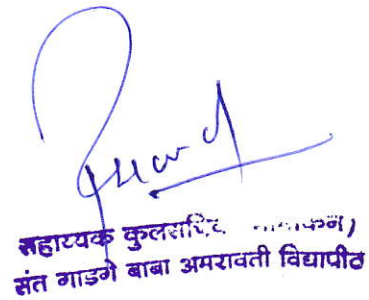 सहाय्यक कुलसचिव
संत गाडगे बाबा अमरावती विद्यापीठ